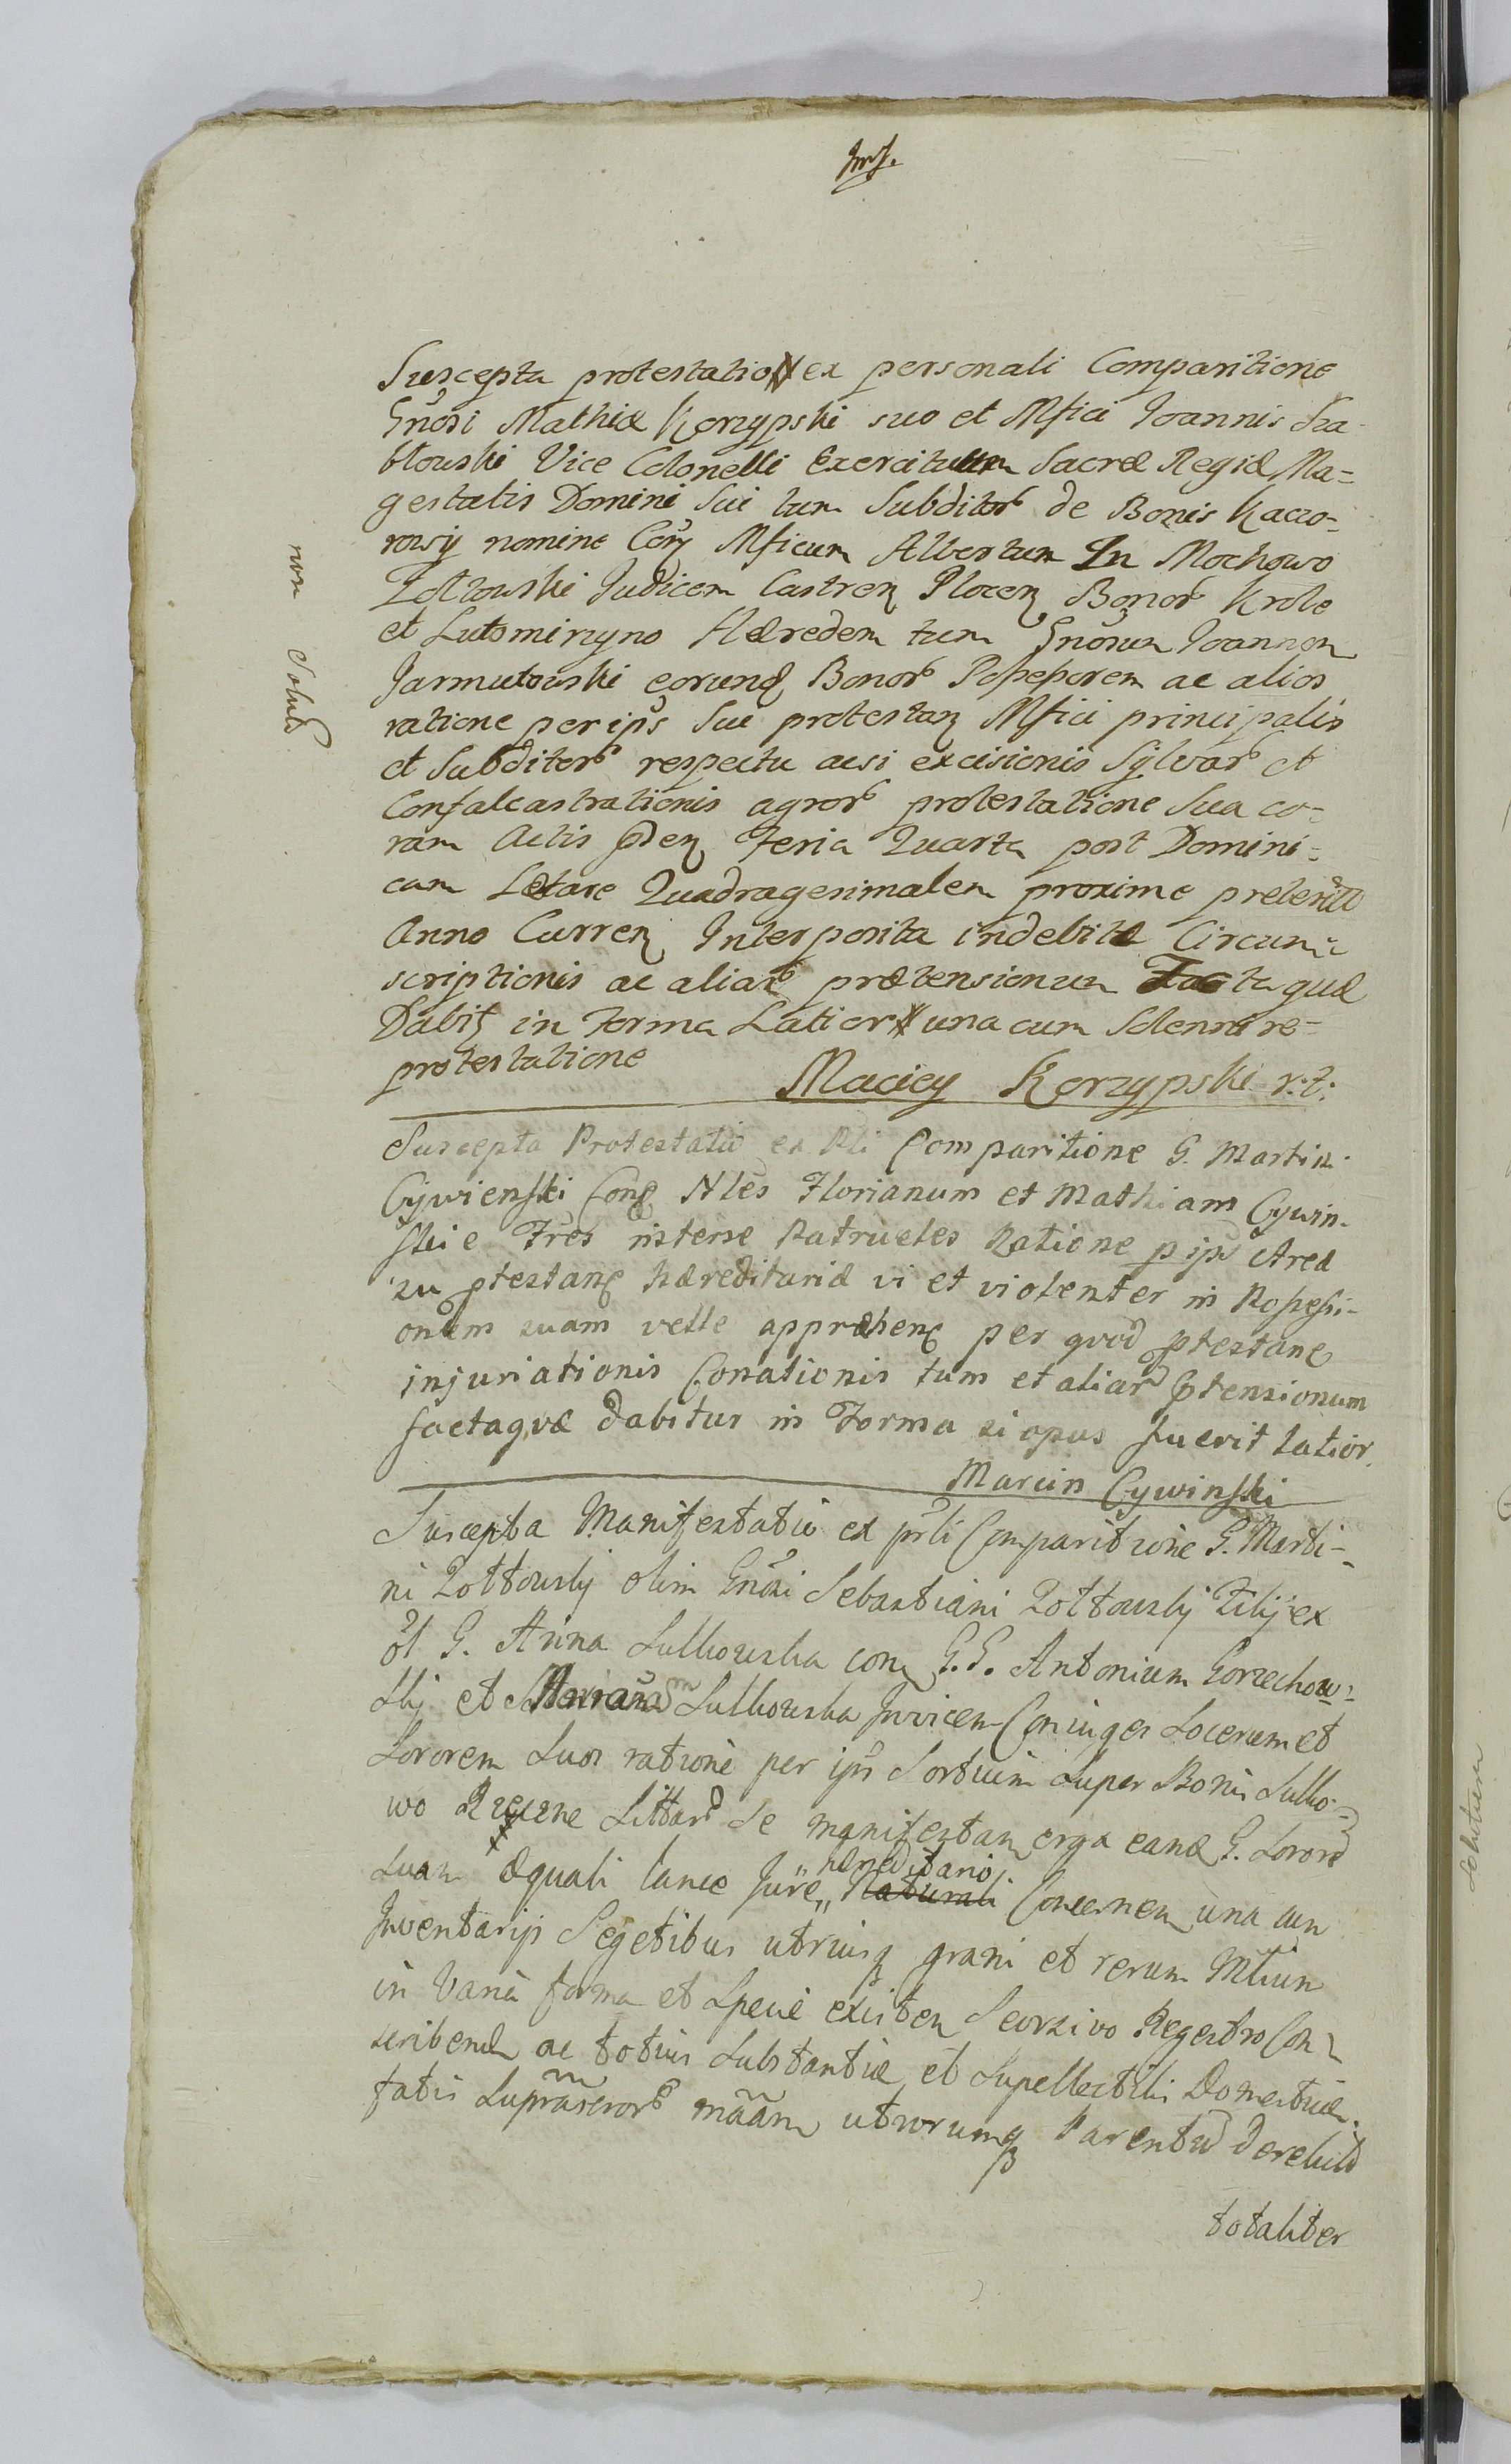 Suscepta protestatio ex personali Comparitione
Gnõsi Mathiæ Korzypski suo et Mfici Joannis Sza-
błowski Vice Colonelli Exercituum Sacræ Regiæ Ma=
gestatis Domini Sui tum Subditor de Bonis Kaczo-
rowy nomine Con Mficum Albertum In Mochowo
Zołtowski Judicem Castren Plocen Bonor Krole
et Lutomirzyno Hæredem tum Gnõsum Joannem
Jarmutowski eorund Bonor Possessorem ac alios
ratione per ips Sue protestan Mfici principalis
et Subditor respectu acsi excisionis Sylvar et
Confalcastrationis agror protestatione Sua co-
ram Actis pden Feria Quarta post Domini=
cam Lætare Quadragesimalem proxime preterita
Anno Curren Interposita indebitæ Circum=
scriptionis ac aliar prætensionum Factaquæ
Dabit in Forma Latior una cum Solenni re=
protestatione
Maciey Korzypski
non Solut
Suscepta Protestatio ex Pli Comparitione G. Martini
Cywienski Con Nles Florianum et Mathiam Cywin-
skie Fres interse Patrueles Ratione p ips Areæ
su ptestan hæreditariæ vi et violenter in Possessi-
onem suam velle appræhen per quod ptestan
injuriationis Conationis tum et aliar ptensionum
factaquæ dabitur in Forma si opus fuerit latior.
Marcin Cywinski
Suscepta Manifestatio ex prli Comparitione G. Marti-
ni Zołtowsky olim Gnõsi Sebastiani Zołtowsky Filij ex
ol G. Anna Sulkowska con G.G. Antonium Gorzechow=
sky et Mariannam Sulkowska Invicem Coniuges Socerum et
Sororem Suos ratione per ips Sortium super Bonis Sulko=
wo Littar Se manifestan erga eand G. Soror
Suam æquali lance Jure hæreditario Naturali Concernen una cum
Inventarijs Segetibus utriusq grani et rerum Mltium
in Varia forma et Specie existen Seorsivo Regestro Con=
scriben ac totius Substantiæ et Supellectilis Domesticæ
fatis utrorumq Parentu derelict
totaliter